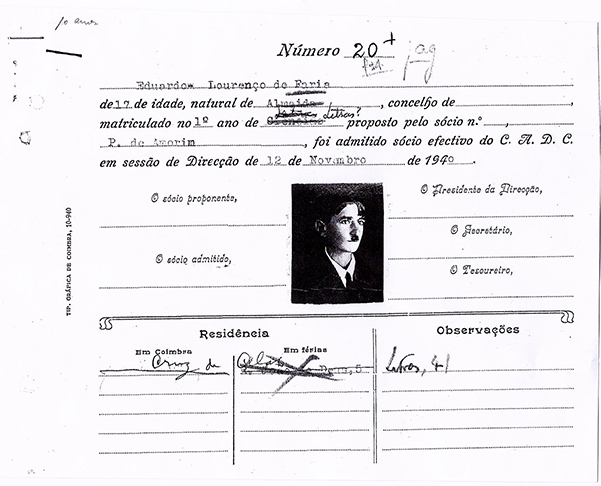 10 anos
Número 20 +
pag
Eduardo Lourenço de Faria
de 17 de idade, natural de Almeida, concelho de
Letras Letras?
matriculado no 1º ano de Sciencias proposto pelo sócio n.º ,
P. de Amorim , foi admitido sócio efectivo do C. A. D. C.
em sessão de Direcção de 12 de Novembro de 1940.
O sócio proponente,
O Presidente da Direcção,
O Secretário,
O sócio admitido,
O Tesoureiro,
TIP. GRÁFICA DE COIMBRA, 10-940
Residência
Observações
Em Coimbra
Em férias
Cruz de
5
Letras, 41